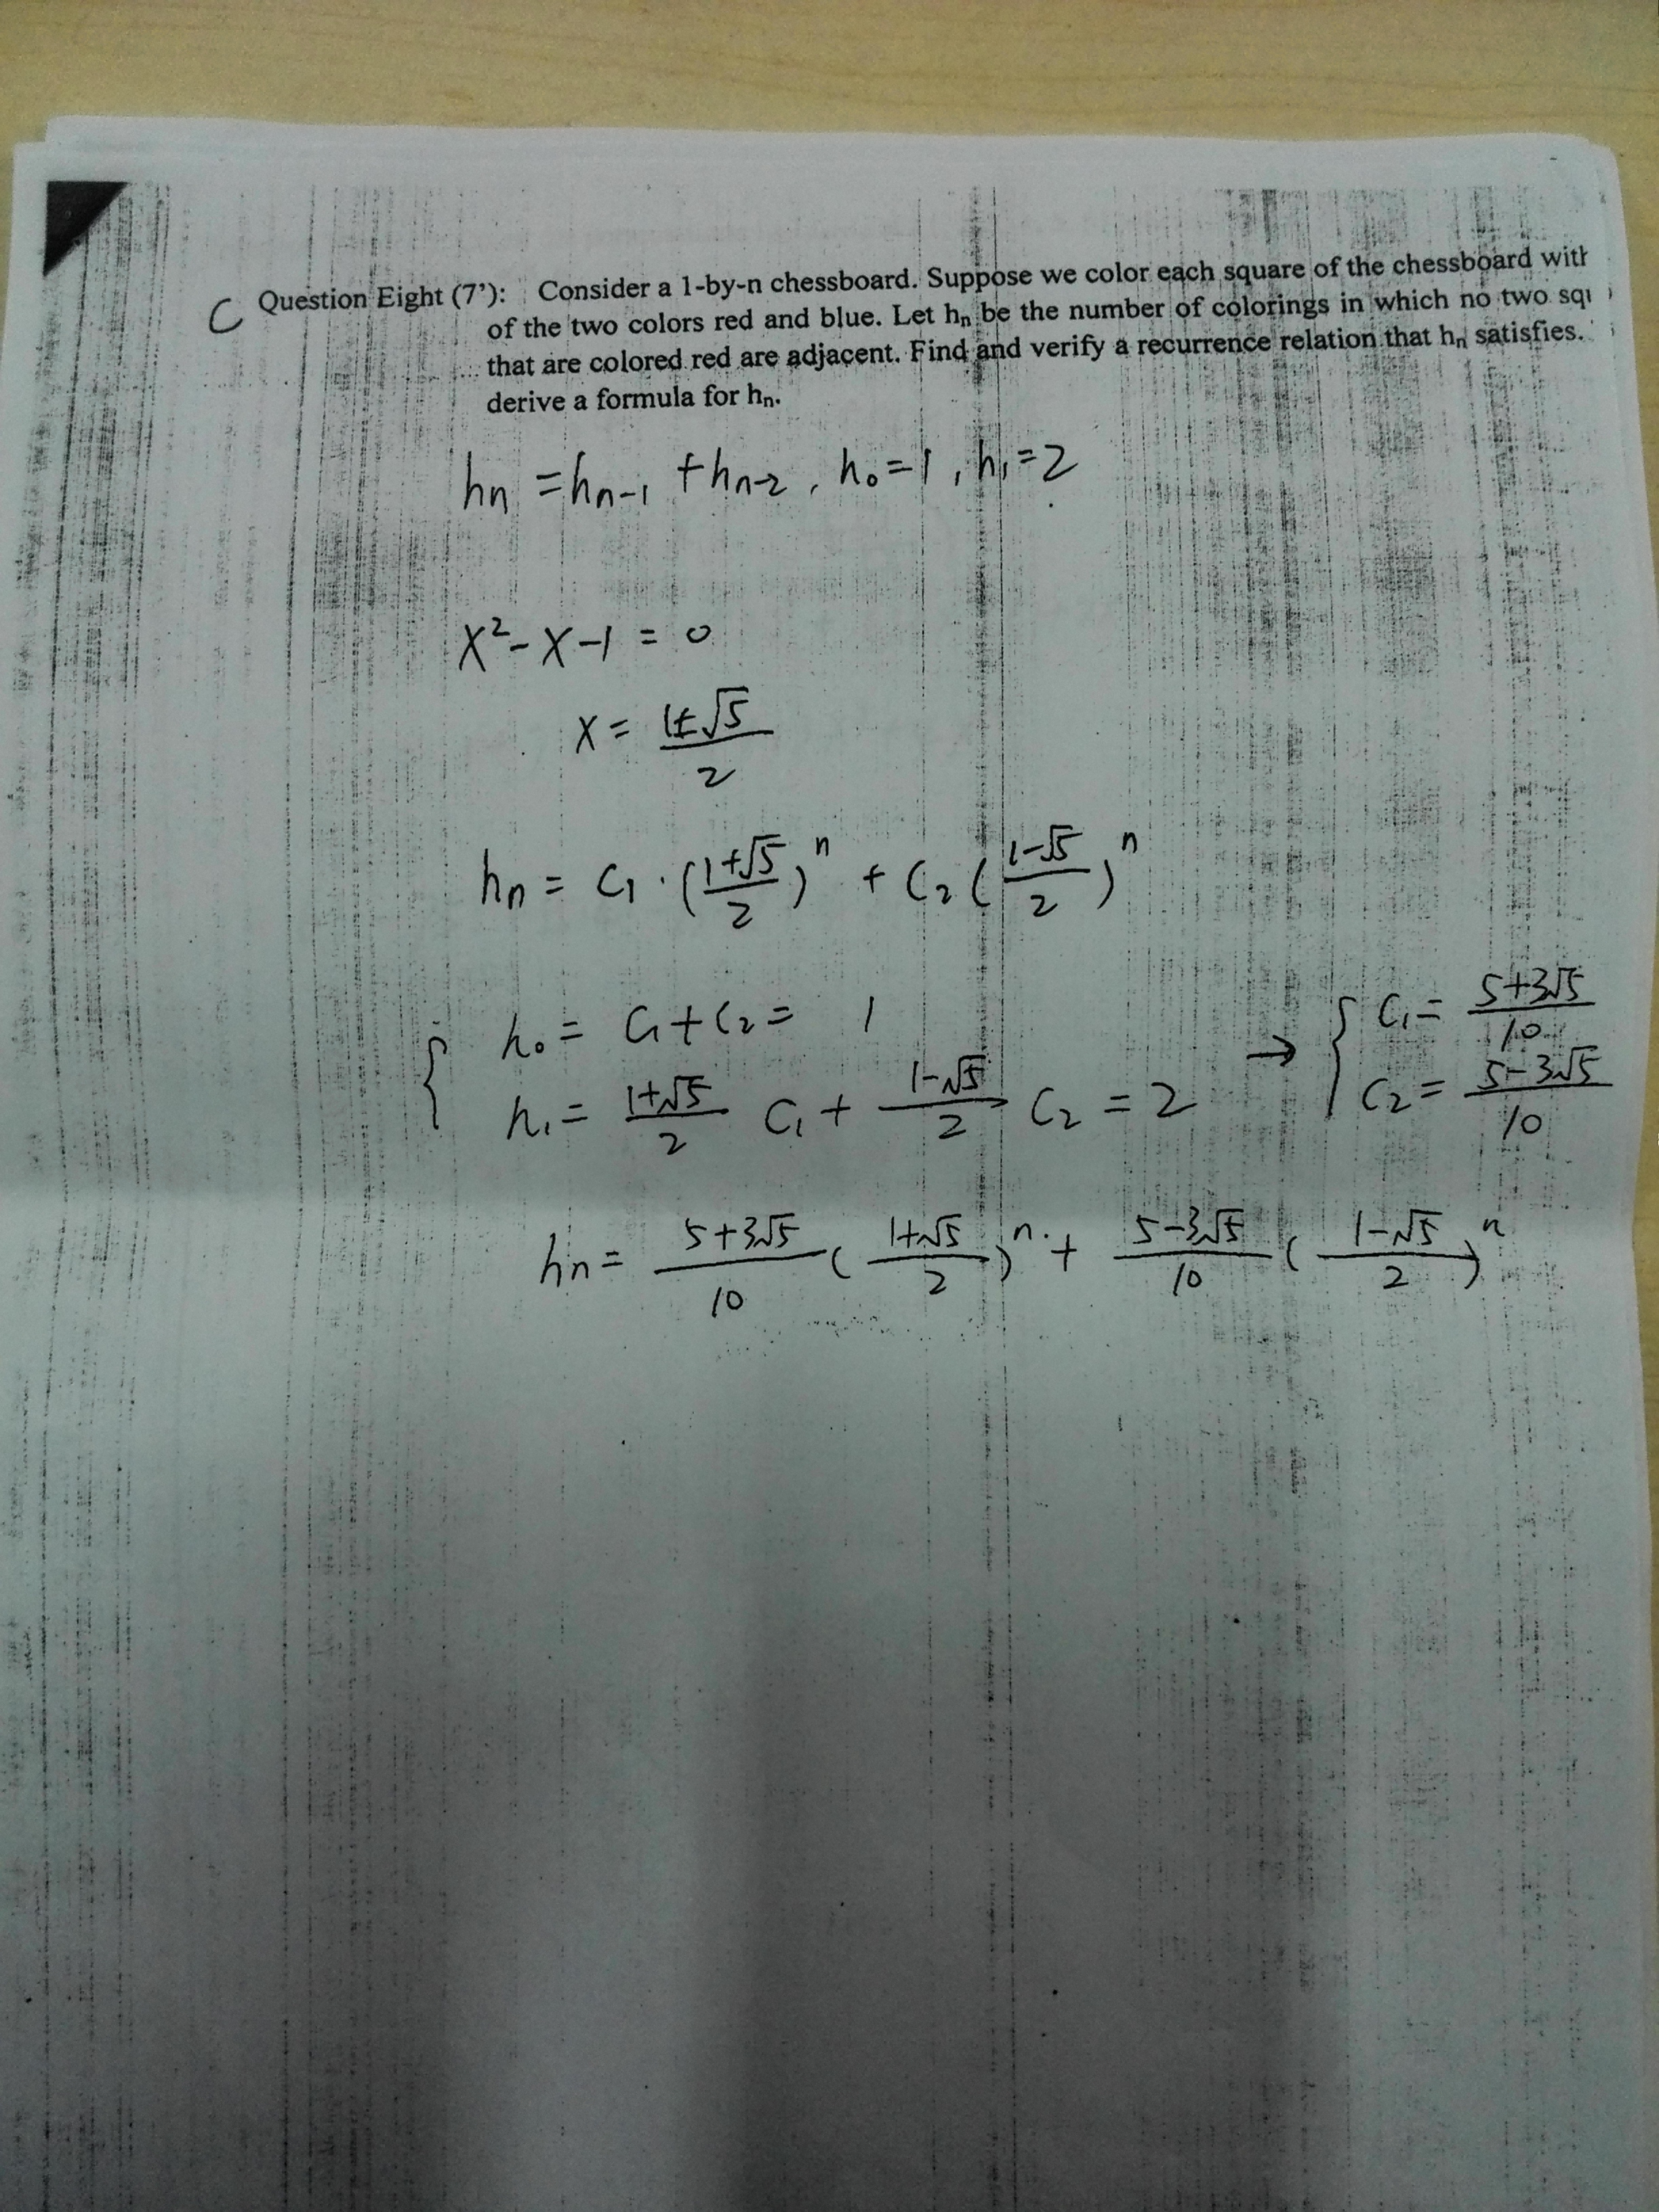 C Question Eight (7'): Consider a 1-by-n chessboard. Suppose we color each square of the chessboard with
of the two colors red and blue. Let hₙ be the number of colorings in which no two squ
that are colored red are adjacent. Find and verify a recurrence relation that hₙ satisfies.
derive a formula for hₙ.
hₙ = hₙ₋₁ + hₙ₋₂, h₀=1, h₁=2
x² - x - 1 = 0
x = (1±√5)/2
hₙ = C₁·((1+√5)/2)ⁿ + C₂((1-√5)/2)ⁿ
{ h₀ = C₁+C₂ = 1 → { C₁ = (5+3√5)/10
h₁ = (1+√5)/2 C₁ + (1-√5)/2 C₂ = 2 C₂ = (5-3√5)/10
hₙ = (5+3√5)/10 ((1+√5)/2)ⁿ + (5-3√5)/10 ((1-√5)/2)ⁿ